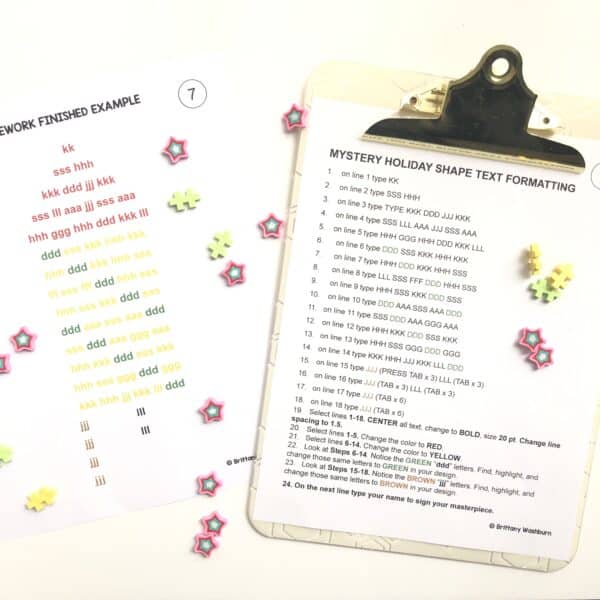 EWORK FINISHED EXAMPLE
7
kk
sss hhh
kkk ddd jjj kkk
sss lll aaa jjj sss aaa
hhh ggg hhh ddd kkk lll
ddd sss kkk hhh kkk
hhh ddd kkk hhh sss
lll sss fff ddd hhh sss
hhh sss kkk ddd sss
ddd aaa sss aaa ddd
sss ddd aaa ggg aaa
hhh kkk ddd sss kkk
hhh sss ggg ddd ggg
kkk hhh jjj kkk lll ddd
jjj lll
jjj lll
jjj
jjj
© Brittany Wa
MYSTERY HOLIDAY SHAPE TEXT FORMATTING
1. on line 1 type KK
2. on line 2 type SSS HHH
3. on line 3 type TYPE KKK DDD JJJ KKK
4. on line 4 type SSS LLL AAA JJJ SSS AAA
5. on line 5 type HHH GGG HHH DDD KKK LLL
6. on line 6 type DDD SSS KKK HHH KKK
7. on line 7 type HHH DDD KKK HHH SSS
8. on line 8 type LLL SSS FFF DDD HHH SSS
9. on line 9 type HHH SSS KKK DDD SSS
10. on line 10 type DDD AAA SSS AAA DDD
11. on line 11 type SSS DDD AAA GGG AAA
12. on line 12 type HHH KKK DDD SSS KKK
13. on line 13 type HHH SSS GGG DDD GGG
14. on line 14 type KKK HHH JJJ KKK LLL DDD
15. on line 15 type JJJ (PRESS TAB x 3) LLL (TAB x 3)
16. on line 16 type JJJ (TAB x 3) LLL (TAB x 3)
17. on line 17 type JJJ (TAB x 6)
18. on line 18 type JJJ (TAB x 6)
19 Select lines 1-18. CENTER all text, change to BOLD, size 20 pt. Change line
spacing to 1.5.
20. Select lines 1-5. Change the color to RED.
21. Select lines 6-14. Change the color to YELLOW
22. Look at Steps 6-14. Notice the GREEN "ddd" letters. Find, highlight, and
change those same letters to GREEN in your design.
23 Look at Steps 15-18. Notice the BROWN "jjj" letters. Find, highlight, and
change those same letters to BROWN in your design.
24. On the next line type your name to sign your masterpiece.
© Brittany Washburn